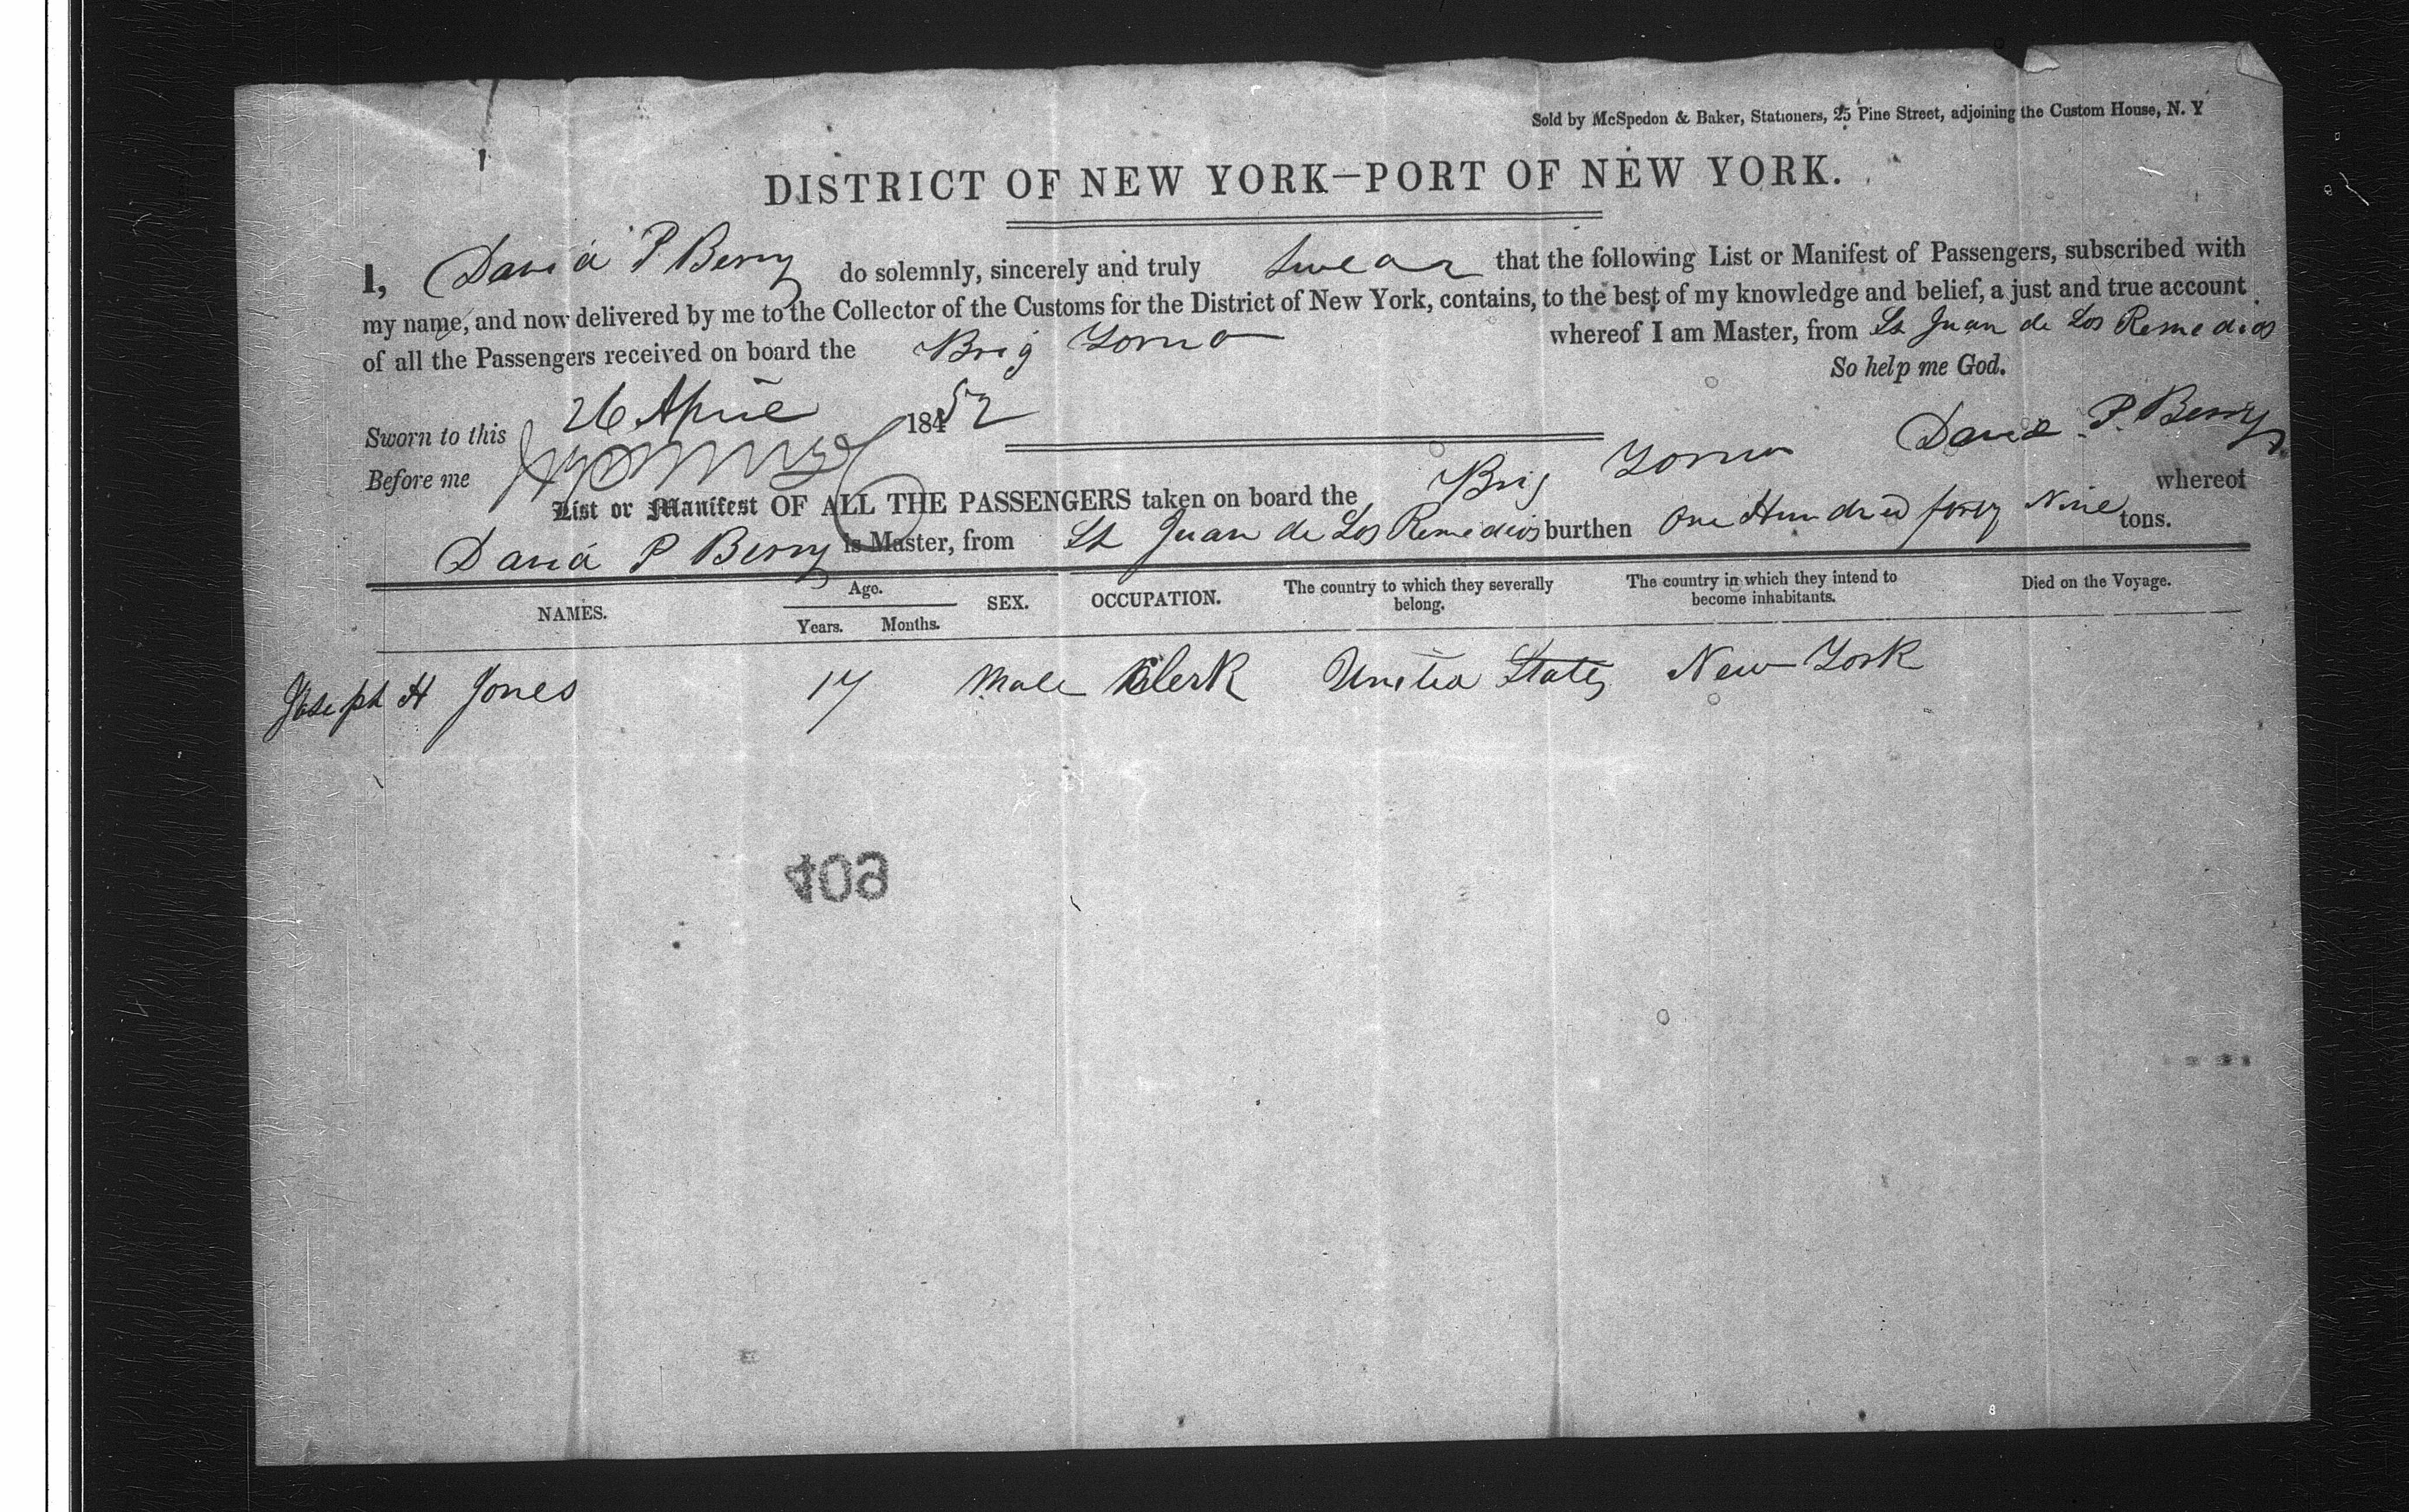 Sold by McSpedon & Baker, Stationers, 25 Pine Street, adjoining the Custom House, N. Y
DISTRICT OF NEW YORK—PORT OF NEW YORK.
I, David P Berry do solemnly, sincerely and truly Swear that the following List or Manifest of Passengers, subscribed with
my name, and now delivered by me to the Collector of the Customs for the District of New York, contains, to the best of my knowledge and belief, a just and true account
of all the Passengers received on board the Brig whereof I am Master, from St Juan de Los Remedios
So help me God.
Sworn to this 26 April 1852
David P. Berry
Before me
List or Manifest OF ALL THE PASSENGERS taken on board the Brig whereof
David P Berry is Master, from St Juan de Los Remedios burthen One Hundred forty Nine tons.
NAMES. Age. Years. Months. SEX. OCCUPATION. The country to which they severally belong. The country in which they intend to become inhabitants. Died on the Voyage.
Joseph H Jones 17 Male Clerk United States New York
409